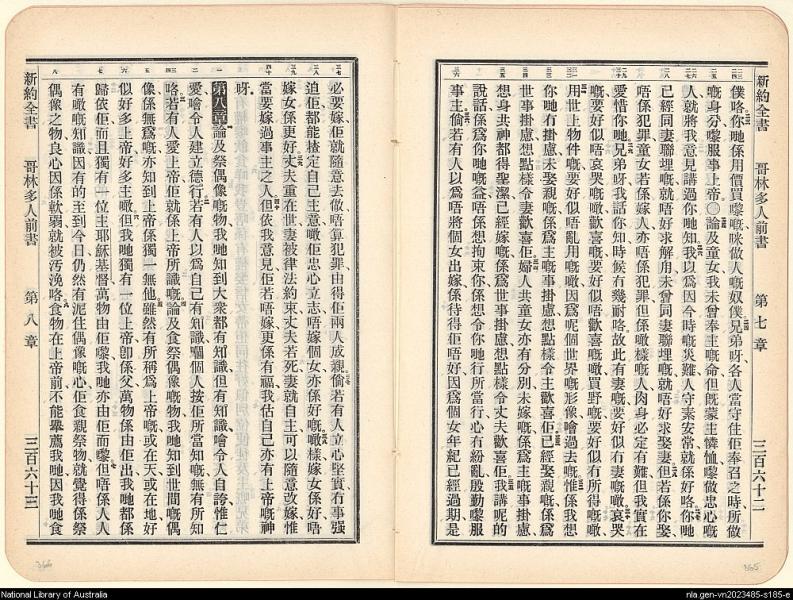 新約全書　哥林多人前書　第七章　三百六十二
僕咯你哋係用價買嚟嘅咪做人嘅奴僕兄弟呀各人當守住佢奉召之時所做
嘅身分嚟服事上帝〇論及童女我未曾奉主嘅命但既蒙主憐恤嚟做忠心嘅
人就將我意見講過你哋知我以為因今時嘅災難人守素安常就係好咯你哋
已經同妻聯埋嘅就唔好求解甩未曾同妻聯埋嘅就唔好求娶妻但若係你娶
唔係犯罪童女若係嫁人亦唔係犯罪但係噉樣嘅人肉身必定有難但我實在
愛惜你哋兄弟呀我話你知時候有幾耐咯故此有妻嘅要好似有妻嘅噉哀哭
嘅要好似唔哀哭嘅噉歡喜嘅要好似唔歡喜嘅噉買野嘅要好似有所得嘅噉
用世上物件嘅要好似唔亂用嘅噉因為呢個世界嘅形像噲過去嘅惟係我想
你哋有掛慮未娶親嘅係為主事掛慮想點樣令主歡喜佢已經娶親嘅係為
世事掛慮想點樣令妻歡喜佢婦人共童女亦有分別未嫁嘅係為主事掛慮
想身共神都得聖潔已經嫁嘅係為世事掛慮想點樣令丈夫歡喜佢我講呢的
說話係為你哋嘅益唔係想拘束你係想令你哋行所當行心冇紛亂殷勤嚟服
事主倘若有人以為唔將個女出嫁係待得佢唔好因為個女年紀已經過期是
新約全書　哥林多人前書　第八章　三百六十三
必要嫁佢就隨意去做唔算犯罪由得佢兩人成親倘若有人立心堅實冇事强
迫佢都能揸定自己主意噉佢忠心立志唔嫁個女亦係好嘅噉樣嫁女係好唔
嫁女係更好丈夫重在世妻被律法約束丈夫若死妻就自主可以隨意改嫁惟
當要嫁過事主之人但依我意見佢若唔嫁更係有福我估自己亦有上帝嘅神
呀
第八章論及祭偶像嘅物我哋知到大衆都有知識但有知識噲令人自誇惟仁
愛噲令人建立德行若有人以為自己有知識嗰個人按佢所當知嘅無有所知
咯若有人愛上帝佢就係上帝所識嘅論及食祭偶像嘅物我哋知到世間嘅偶
像係無為嘅亦知到上帝係獨一無他雖然有所稱為上帝嘅或在天或在地好
似好多上帝好多主噉但我哋獨有一位上帝卽係父萬物係由佢出我哋都係
歸依佢而且獨有一位主耶穌基督萬物由佢嚟我哋亦由佢而嚟但唔係人人
有噉嘅知識因有的至到今日仍然有泥住偶像嘅心佢食親祭物就覺得係祭
偶像之物良心因係軟弱就被汚浼咯食物在上帝前不能舉薦我哋因我哋食
National Library of Australia
nla.gen-vn2023485-s185-e